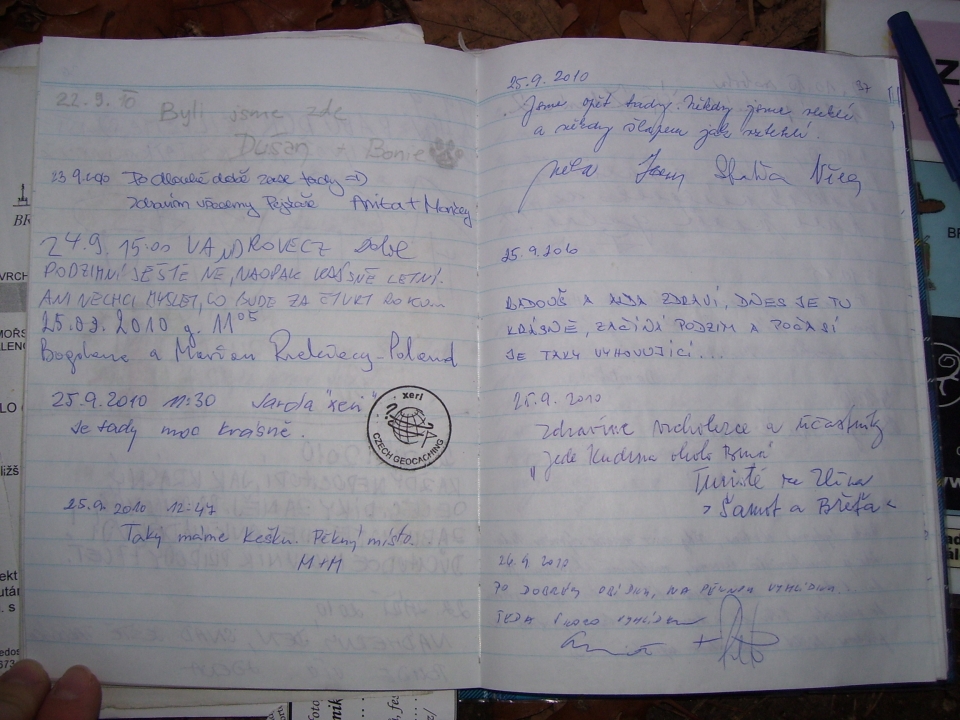 22.9.10
Byli jsme zde
Dušan + Bonie
23.9.2010 Po dlouhé době zase tady =)
Zdravím všechny Anita + Monkey
24.9. 15:00 VANDROVECZ
PODZIMNÍ JEŠTĚ NE, NAOPAK KRÁSNĚ LETNÍ.
ANI NECHCI MYSLET, CO BUDE ZA ČTVRT ROKU
25.09.2010 g. 11⁰⁵
Bogdana a Marian -Poland
25.9.2010 11:30 Jarda "xeri"
Je tady moc krásně.
xeri
CZECH GEOCACHING
25.9.2010 12:47
Taky máme kešku. Pěkný místo.
M+M
37
25.9.2010
Jsme opět tady. Někdy jsme
a někdy šlapem jak vzteklí.
25.9.2010
RADOUŠ A ZDRAVÍ, DNES JE TU
KRÁSNĚ, ZAČÍNÁ PODZIM A POČASÍ
JE TAKY VYHOVUJÍCÍ...
25.9.2010
Zdravíme vrcholezce a účastníky
"Jede Kudrna okolo Brna"
Turisté ze Zlína
Šamot a Břéťa
PO DOBRÝM OBÍDKU, NA PĚKNOU VYHLÍDKU...